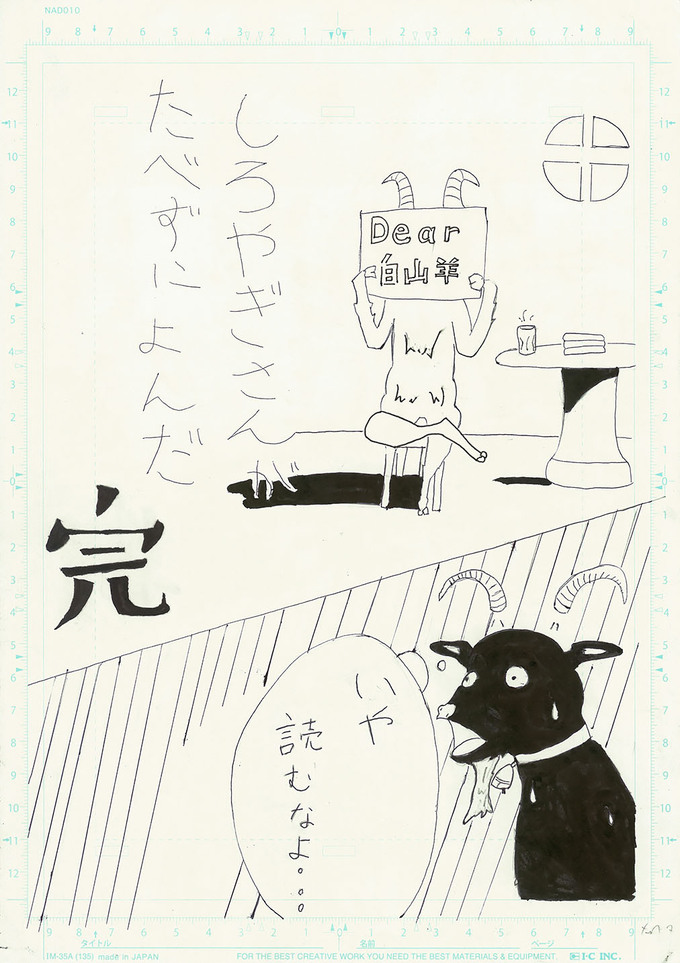 NAD010
しろやぎさんが
たべずによんだ
Dear
白山羊
完
いや
読むなよ・・・
タイトル
名前
ページ
IM-35A (135) made in JAPAN
FOR THE BEST CREATIVE WORK YOU NEED THE BEST MATERIALS & EQUIPMENT.
I·C INC.